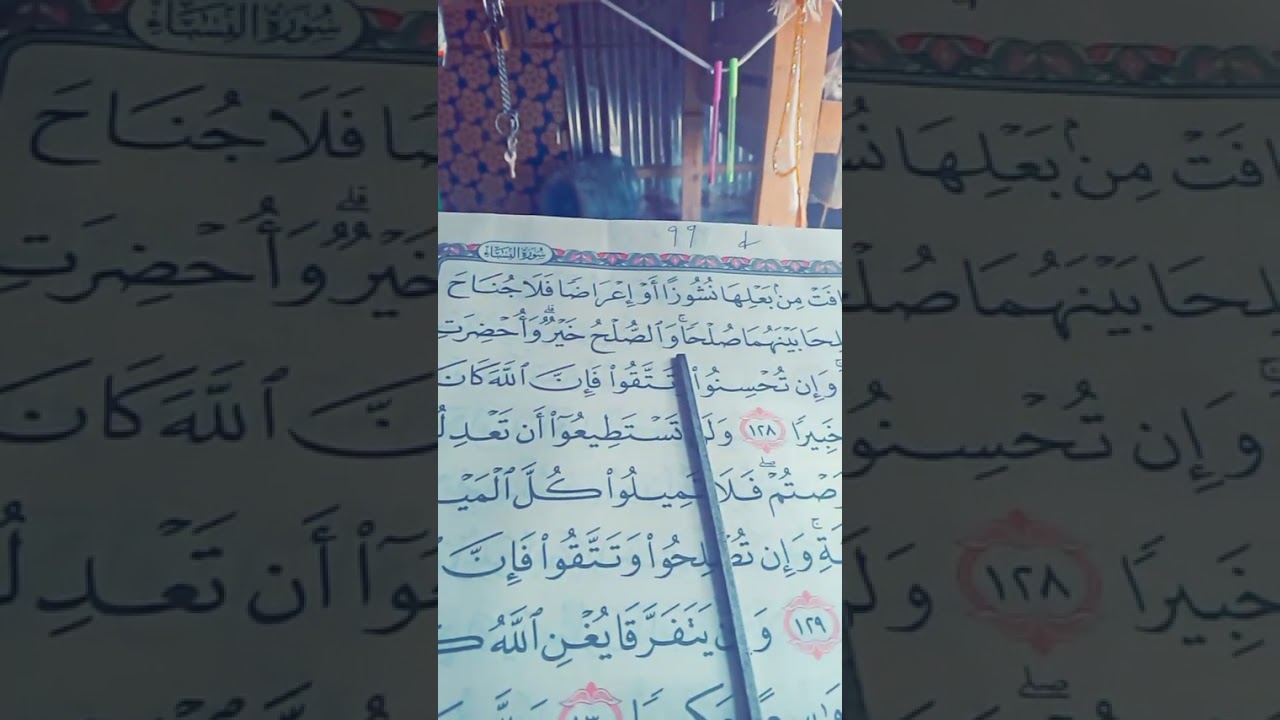 ٩٩
سُورَةُ النِّسَاءِ
افَتْ مِنۢ بَعْلِهَا نُشُوزًا أَوْ إِعْرَاضًا فَلَا جُنَاحَ
لِحَا بَيْنَهُمَا صُلْحًاۚ وَٱلصُّلْحُ خَيْرٌۗ وَأُحْضِرَتِ
وَإِن تُحْسِنُوا۟ تَتَّقُوا۟ فَإِنَّ ٱللَّهَ كَانَ
خَبِيرًا ١٢٨ وَلَن تَسْتَطِيعُوٓا۟ أَن تَعْدِلُ
صْتُمْۖ فَلَا تَمِيلُوا۟ كُلَّ ٱلْمَيْ
ةِۚ وَإِن تُصْلِحُوا۟ وَتَتَّقُوا۟ فَإِنَّ
١٢٩ وَإِن يَتَفَرَّقَا يُغْنِ ٱللَّهُ كُ